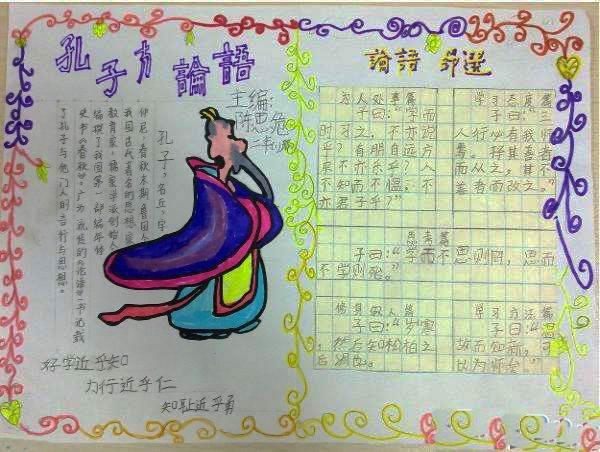 孔子与論語
主编:
陈思危
孔子,名丘,字
仲尼,春秋末期鲁国人,
我国古代著名的思想家、
教育家、儒家学派创始人,
编撰了我国第一部编年体
史书《春秋》。广为流传的《论语》一书记载
了孔子与他门人的言行与思想。
好学近乎知
力行近乎仁
知耻近乎勇
論語 節選
为人处事篇
子曰:“学而
时习之,不亦说
乎?有朋自远方
来不亦乐乎?人
不知而不愠,不
亦君子乎?”
学习态度篇
子曰:“三
人行必有我师
焉。择其善者
而从之,其不
善者而改之。”
思考篇
子曰:“学而不思则罔,思而
不学则殆。”
修身做人篇
子曰:“岁寒
,然后知松柏之
后凋也。
学习方法篇
子曰:“温
故而知新,可
以为师矣”